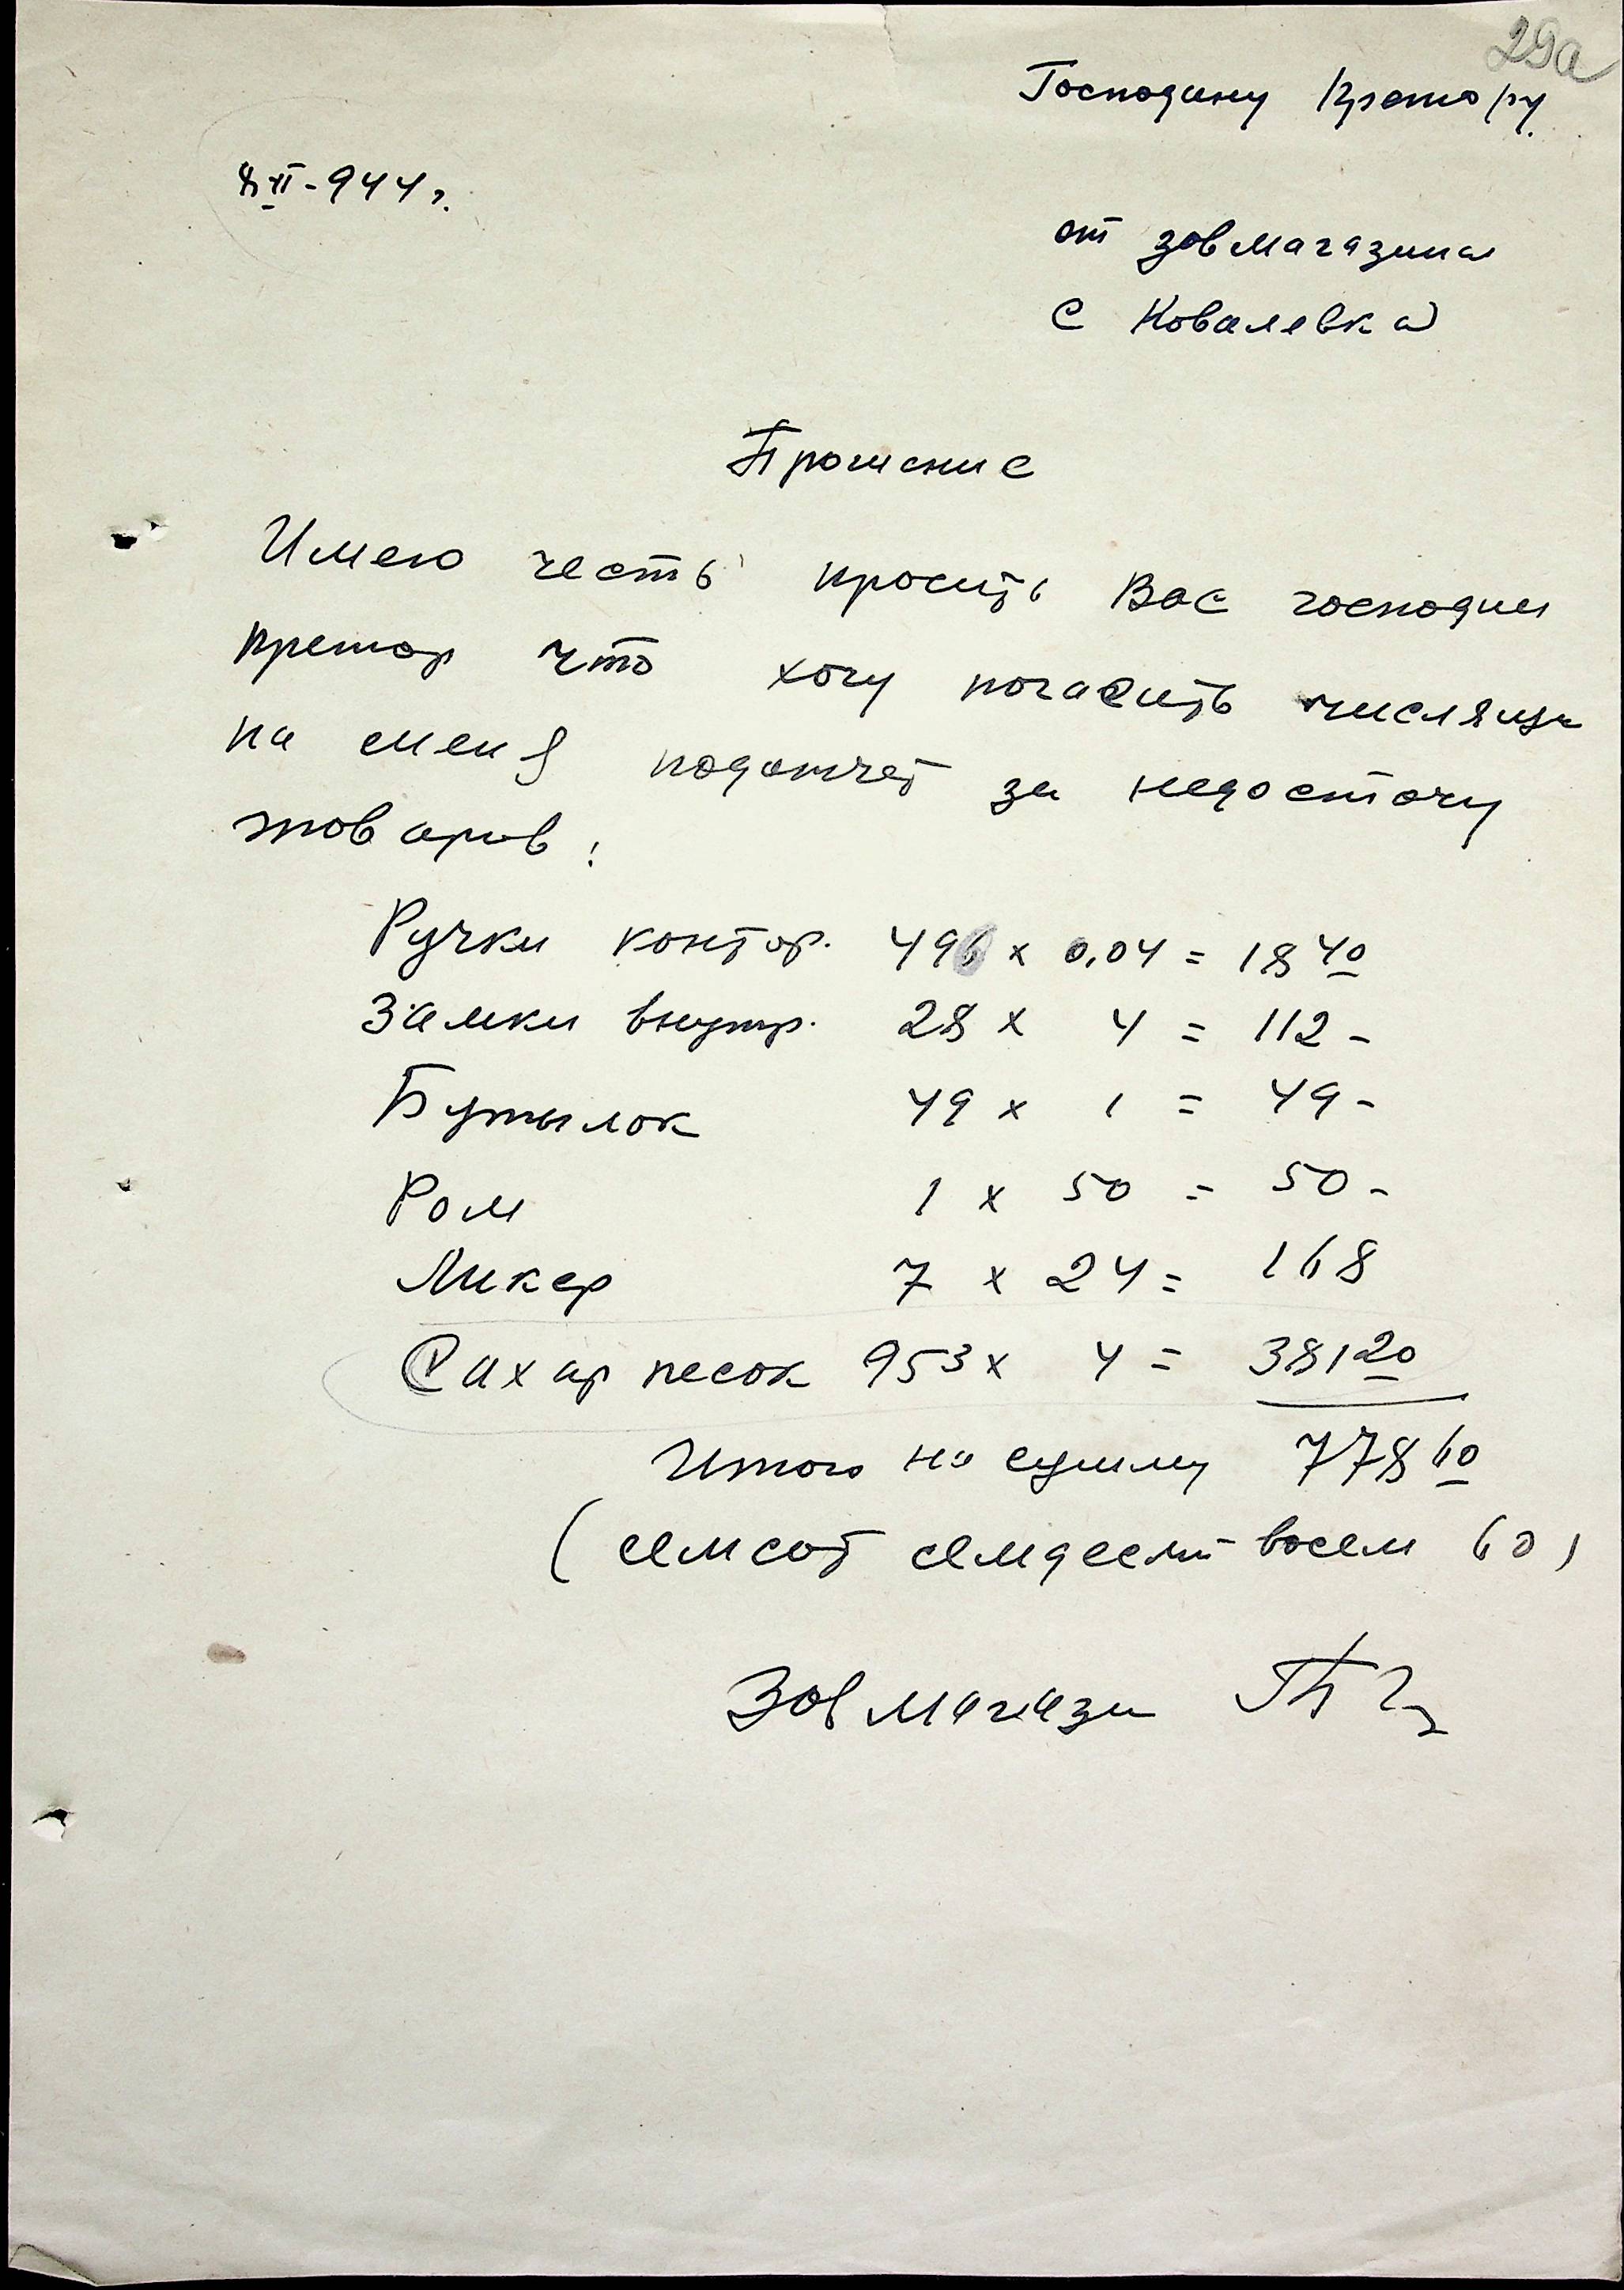 29а
Господину Претору.
8 II - 944 г.
от завмагазина
с Ковалевка
Прошение
Имею честь просить Вас господин
претор что хочу погасить числящ
на меня подотчет за недостачу
товаров:
Ручки контор. 496 x 0,04 = 18 40
Замки внутр. 28 x 4 = 112 -
Бутылок 49 x 1 = 49 -
Ром 1 x 50 = 50 -
Ликер 7 x 24 = 168
Сахар песок 953 x 4 = 381 20
Итого на сумму 778 60
(семсот семдесят восем 60)
Зав магази